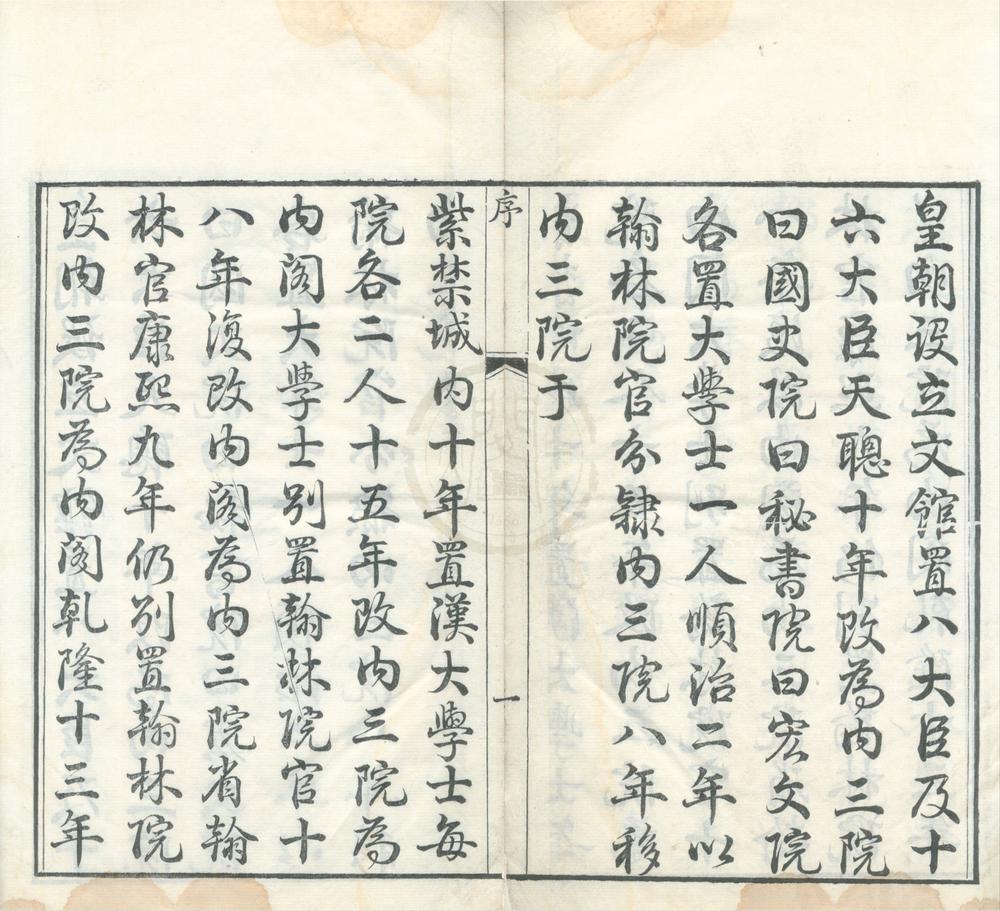 皇朝設立文館置八大臣及十
六大臣天聰十年改為内三院
曰國史院曰秘書院曰宏文院
各置大學士一人順治二年以
翰林院官分隸内三院八年移
内三院于
序
一
紫禁城内十年置漢大學士每
院各二人十五年改内三院為
内閣大學士別置翰林院官十
八年復改内閣為内三院省翰
林官康熙九年仍別置翰林院
改内三院為内閣乹隆十三年